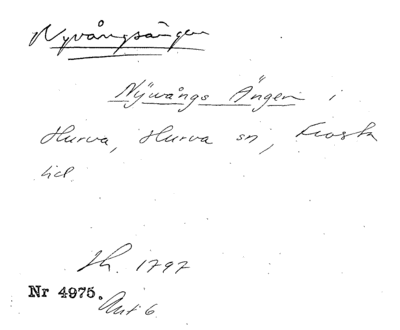 Nyvångsängen
Nÿwångs Ängen i
Hurva, Hurva sn, Frosta
hd.
Sk. 1797
Nr 4975.
Akt 6